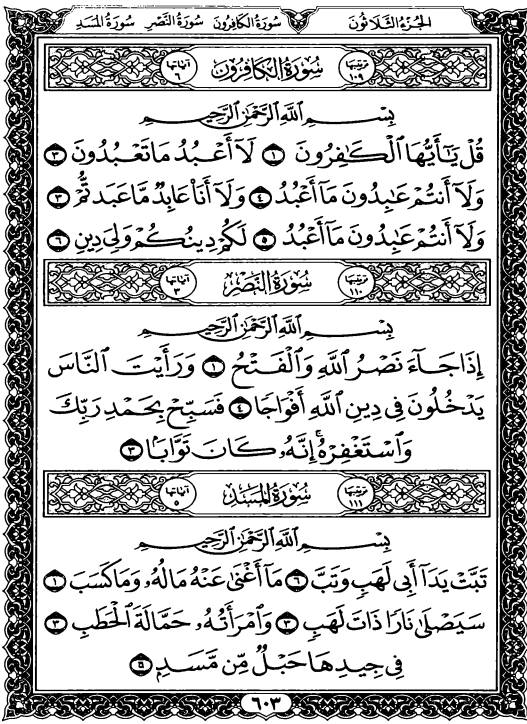 الجُزْءُ الثَّلَاثُونَ سُورَةُ الكَافِرُونَ سُورَةُ النَّصْرِ سُورَةُ المَسَدِ
تَرتيبُها ١٠٩ سُورَةُ الكَافِرُونَ آيَاتُها ٦
بِسْمِ ٱللَّهِ ٱلرَّحْمَٰنِ ٱلرَّحِيمِ
قُلْ يَٰٓأَيُّهَا ٱلْكَٰفِرُونَ ١ لَآ أَعْبُدُ مَا تَعْبُدُونَ ٣
وَلَآ أَنتُمْ عَٰبِدُونَ مَآ أَعْبُدُ ٤ وَلَآ أَنَا۠ عَابِدٌ مَّا عَبَدتُّمْ ٣
وَلَآ أَنتُمْ عَٰبِدُونَ مَآ أَعْبُدُ ٥ لَكُمْ دِينُكُمْ وَلِىَ دِينِ ٦
تَرتيبُها ١١٠ سُورَةُ النَّصْرِ آيَاتُها ٣
بِسْمِ ٱللَّهِ ٱلرَّحْمَٰنِ ٱلرَّحِيمِ
إِذَا جَآءَ نَصْرُ ٱللَّهِ وَٱلْفَتْحُ ١ وَرَأَيْتَ ٱلنَّاسَ
يَدْخُلُونَ فِى دِينِ ٱللَّهِ أَفْوَاجًا ٤ فَسَبِّحْ بِحَمْدِ رَبِّكَ
وَٱسْتَغْفِرْهُ ۚ إِنَّهُۥ كَانَ تَوَّابًۢا ٣
تَرتيبُها ١١١ سُورَةُ المَسَدِ آيَاتُها ٥
بِسْمِ ٱللَّهِ ٱلرَّحْمَٰنِ ٱلرَّحِيمِ
تَبَّتْ يَدَآ أَبِى لَهَبٍ وَتَبَّ ٦ مَآ أَغْنَىٰ عَنْهُ مَالُهُۥ وَمَا كَسَبَ ١
سَيَصْلَىٰ نَارًا ذَاتَ لَهَبٍ ٣ وَٱمْرَأَتُهُۥ حَمَّالَةَ ٱلْحَطَبِ ٣
فِى جِيدِهَا حَبْلٌ مِّن مَّسَدٍۭ ٥
٦٠٣